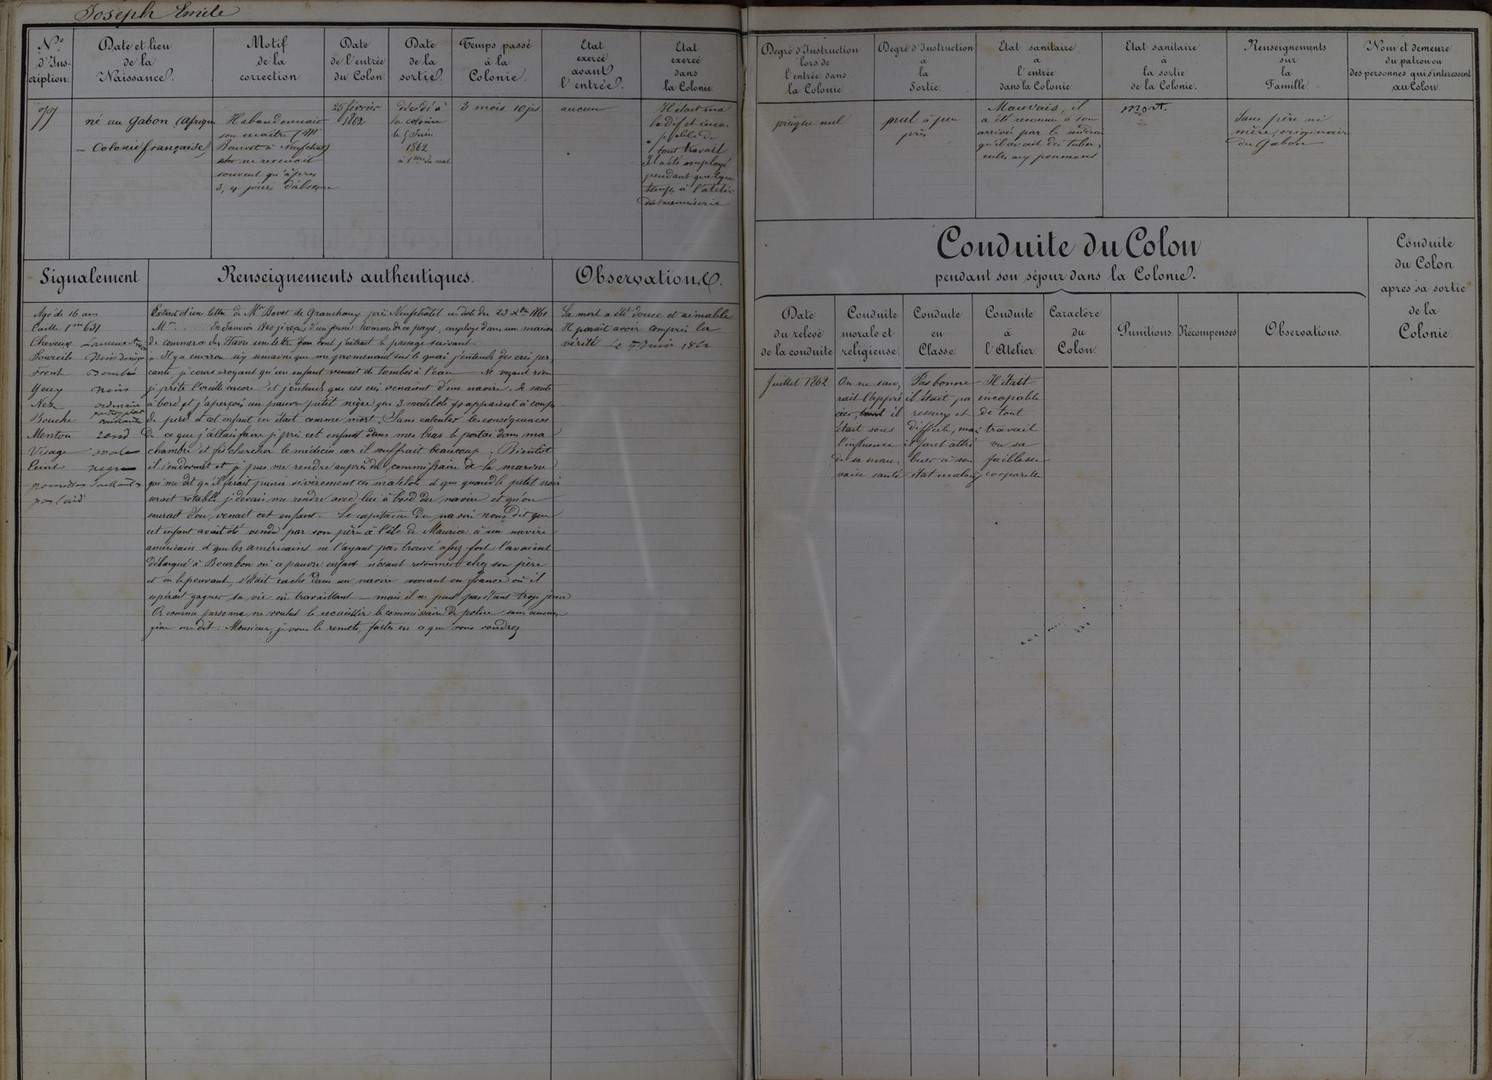 Joseph Emile
N.o d'Ins-cription.
Date et lieu de la Naissance.
Motif de la correction.
Date de l'entrée du Colon.
Date de la sortie.
Temps passé à la Colonie.
Etat exercé avant l'entrée.
Etat exercé dans la Colonie.
né au Gabon (Afrique
– Colonie française)
Il abandonnait
son maître (Mr
Bouvet à Neufchâtel)
ne revenait
souvent qu'après
3, 4 jours d'absence
25 février
1862
décédé à
la colonie
le 5 Juin
1862
3 mois 10 jrs
aucun
Il était ma
lade et inca
pable de
tout travail
Il a été employé
pendant quelque
temps à l'atelier
de menuiserie
Signalement
Renseignements authentiques.
Observations.
Agé de 16 ans
Taille 1m 631
Cheveux
Sourcils
Front bombé
Yeux noirs
Nez ordinaire
Bouche
Menton rond
Visage ovale
Teint negre
Extrait d'une lettre de Mr Bovet de Neufchâtel en date du 23 Xbre 1861
de commerce du Havre une lettre dont j'extrait le passage suivant
Il y a environ six semaines que me promenant sur le quai j'entends des cris per
çants, je cours croyant qu'un enfant venait de tomber à l'eau — Ne voyant rien
je prête l'oreille encore et j'entends que ces cris venaient d'un navire. Je saute
à bord et j'aperçois un pauvre petit nègre que 3 matelots frappaient à coups
de pied et cet enfant en était comme mort. Sans calculer les conséquences
de ce que j'allais faire je pris cet enfant dans mes bras le portai dans ma
chambre et fis chercher le médecin car il souffrait beaucoup. Bientôt
il s'endormit et je pus me rendre auprès du commissaire de la marine
qui me dit qu'il ferait punir sévèrement ces matelots et que quand le petit noir
serait rétabli je devais me rendre avec lui à bord du navire et qu'on
saurait d'où venait cet enfant. Le capitaine du navire nous dit que
cet enfant avait été vendu par son père à l'île de Maurice à un navire
américain et que les américains ne l'ayant pas trouvé assez fort l'avaient
débarqué à Bourbon où ce pauvre enfant n'osant retourner chez son père
et ne le pouvant, s'était caché dans un navire venant en france où il
espérait gagner sa vie en travaillant — mais il ne peut pas étant trop jeune
Or comme personne ne voulut le recueillir le commissaire de police sans aucune
gêne me dit: Monsieur, je vous le remets, faites en ce que vous voudrez
La mort a été douce et aimable
Il paraît avoir compris la
vérité Le 5 Juin 1862
Degré d'Instruction lors de l'entrée dans la Colonie.
Degré d'Instruction à la Sortie.
Etat sanitaire à l'entrée dans la Colonie.
Etat sanitaire à la sortie de la Colonie.
Renseignements sur la Famille.
Nom et demeure du patron ou des personnes qui s'intéressent au Colon.
presque nul
nul à peu
près
Mauvais, il
a été reconnu à son
arrivée par le médecin
qu'il avait des tuber-
cules aux poumons
mort.
Sans père ni
mère, originaire
du Gabon
Conduite du Colon
pendant son séjour dans la Colonie.
Conduite du Colon apres sa sortie de la Colonie.
Date du relevé de la conduite.
Conduite morale et religieuse.
Conduite en Classe.
Conduite à l'Atelier.
Caractère du Colon.
Punitions.
Récompenses.
Observations.
Juillet 1862
On ne sau-
rait l'appré
cier, il
était sous
l'influence
de sa mau-
vaise santé
Pas bonne
il était pa
resseux et
difficile, mais
il faut attri
buer à son
état maladif
Il était
incapable
de tout
travail
vu sa
faiblesse
corporelle